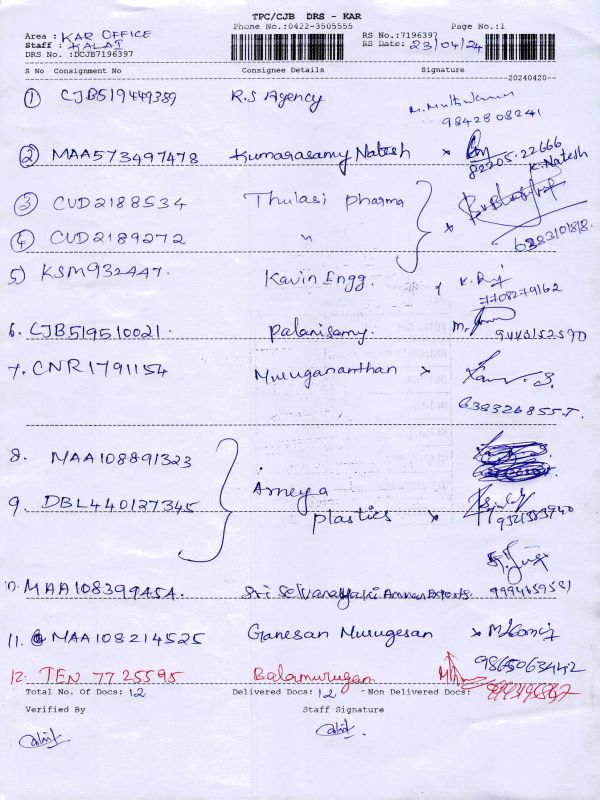 TPC/CJB DRS - KAR
Phone No.:0422-3505555 Page No.:1
Area : KAR OFFICE RS No.:7196397
Staff : KALAI RS Date: 23/04/24
DRS No. :DCJB7196397
S No Consignment No Consignee Details Signature
20240420
1 CJB519449389 R.S Agency
9842808241
2 MAA573497478 Kumarasamy Natesh x
82205.22666
K. Natesh
3 CUD2188534 Thulasi pharma
4 CUD2189272 " x
6383101818.
5) KSM932447. Kavin Ingg.
7708279162
6. CJB519510021. Palanisamy.
9443152590
7. CNR1791154 Murugananthan x
8. MAA108891323
9. DBL440127345 Ameya
plastics x
10. MAA108399454.
11. MAA108214525 Ganesan Murugesan x
9865063442
12. TEN 7725595 Balamurugan
Total No. Of Docs: 12 Delivered Docs: 12 - Non Delivered Docs:
Verified By Staff Signature